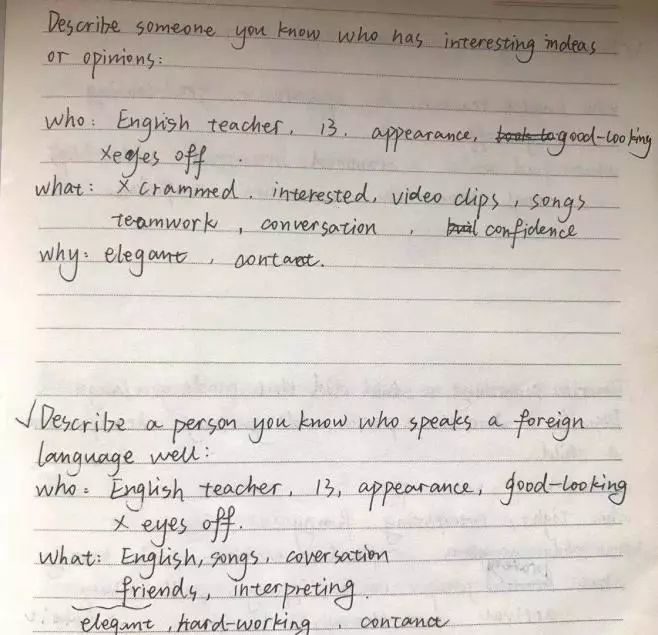 Describe someone you know who has interesting indeas
or opinions:
who: English teacher, 13, appearance, good-looking
×eyes off.
what: × crammed, interested, video clips, songs
teamwork, conversation, confidence
why: elegant, contact.
√ Describe a person you know who speaks a foreign
language well:
who: English teacher, 13, appearance, good-looking
× eyes off.
What: English, songs, coversation
friends, interpreting.
elegant, hard-working, contanct